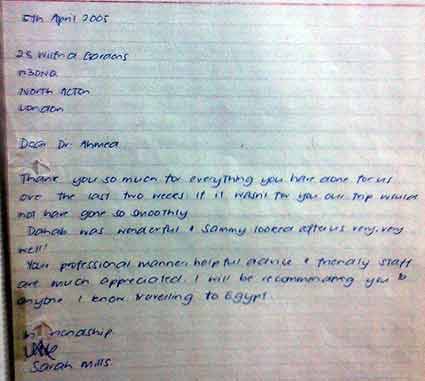 5th April 2005
28 Gardens
W3 0NA
North Acton
London
Dear Dr. Ahmed
Thank you so much for everything you have done for us
over the last two weeks. If it wasn't for you our trip would
not have gone so smoothly
Dahab was wonderful & Sammy looked after us very, very
well!
Your professional manner, helpful advice & friendly staff
are much appreciated. I will be recommending you to
anyone I know travelling to Egypt.
In friendship
Sarah Mills